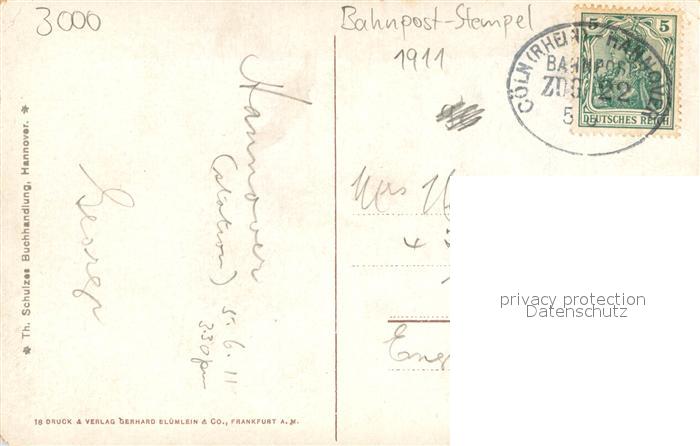 3000
Bahnpost-Stempel
1911
CÖLN (RHEIN) HANNOVER
BAHNPOST
ZUG 22
5 5
DEUTSCHES REICH
Hannover
(station)
5.6.11
3.30pm
George
Mrs
privacy protection
Datenschutz
* Th. Schulzes Buchhandlung, Hannover. *
18 DRUCK & VERLAG GERHARD BLÜMLEIN & CO., FRANKFURT A. M.